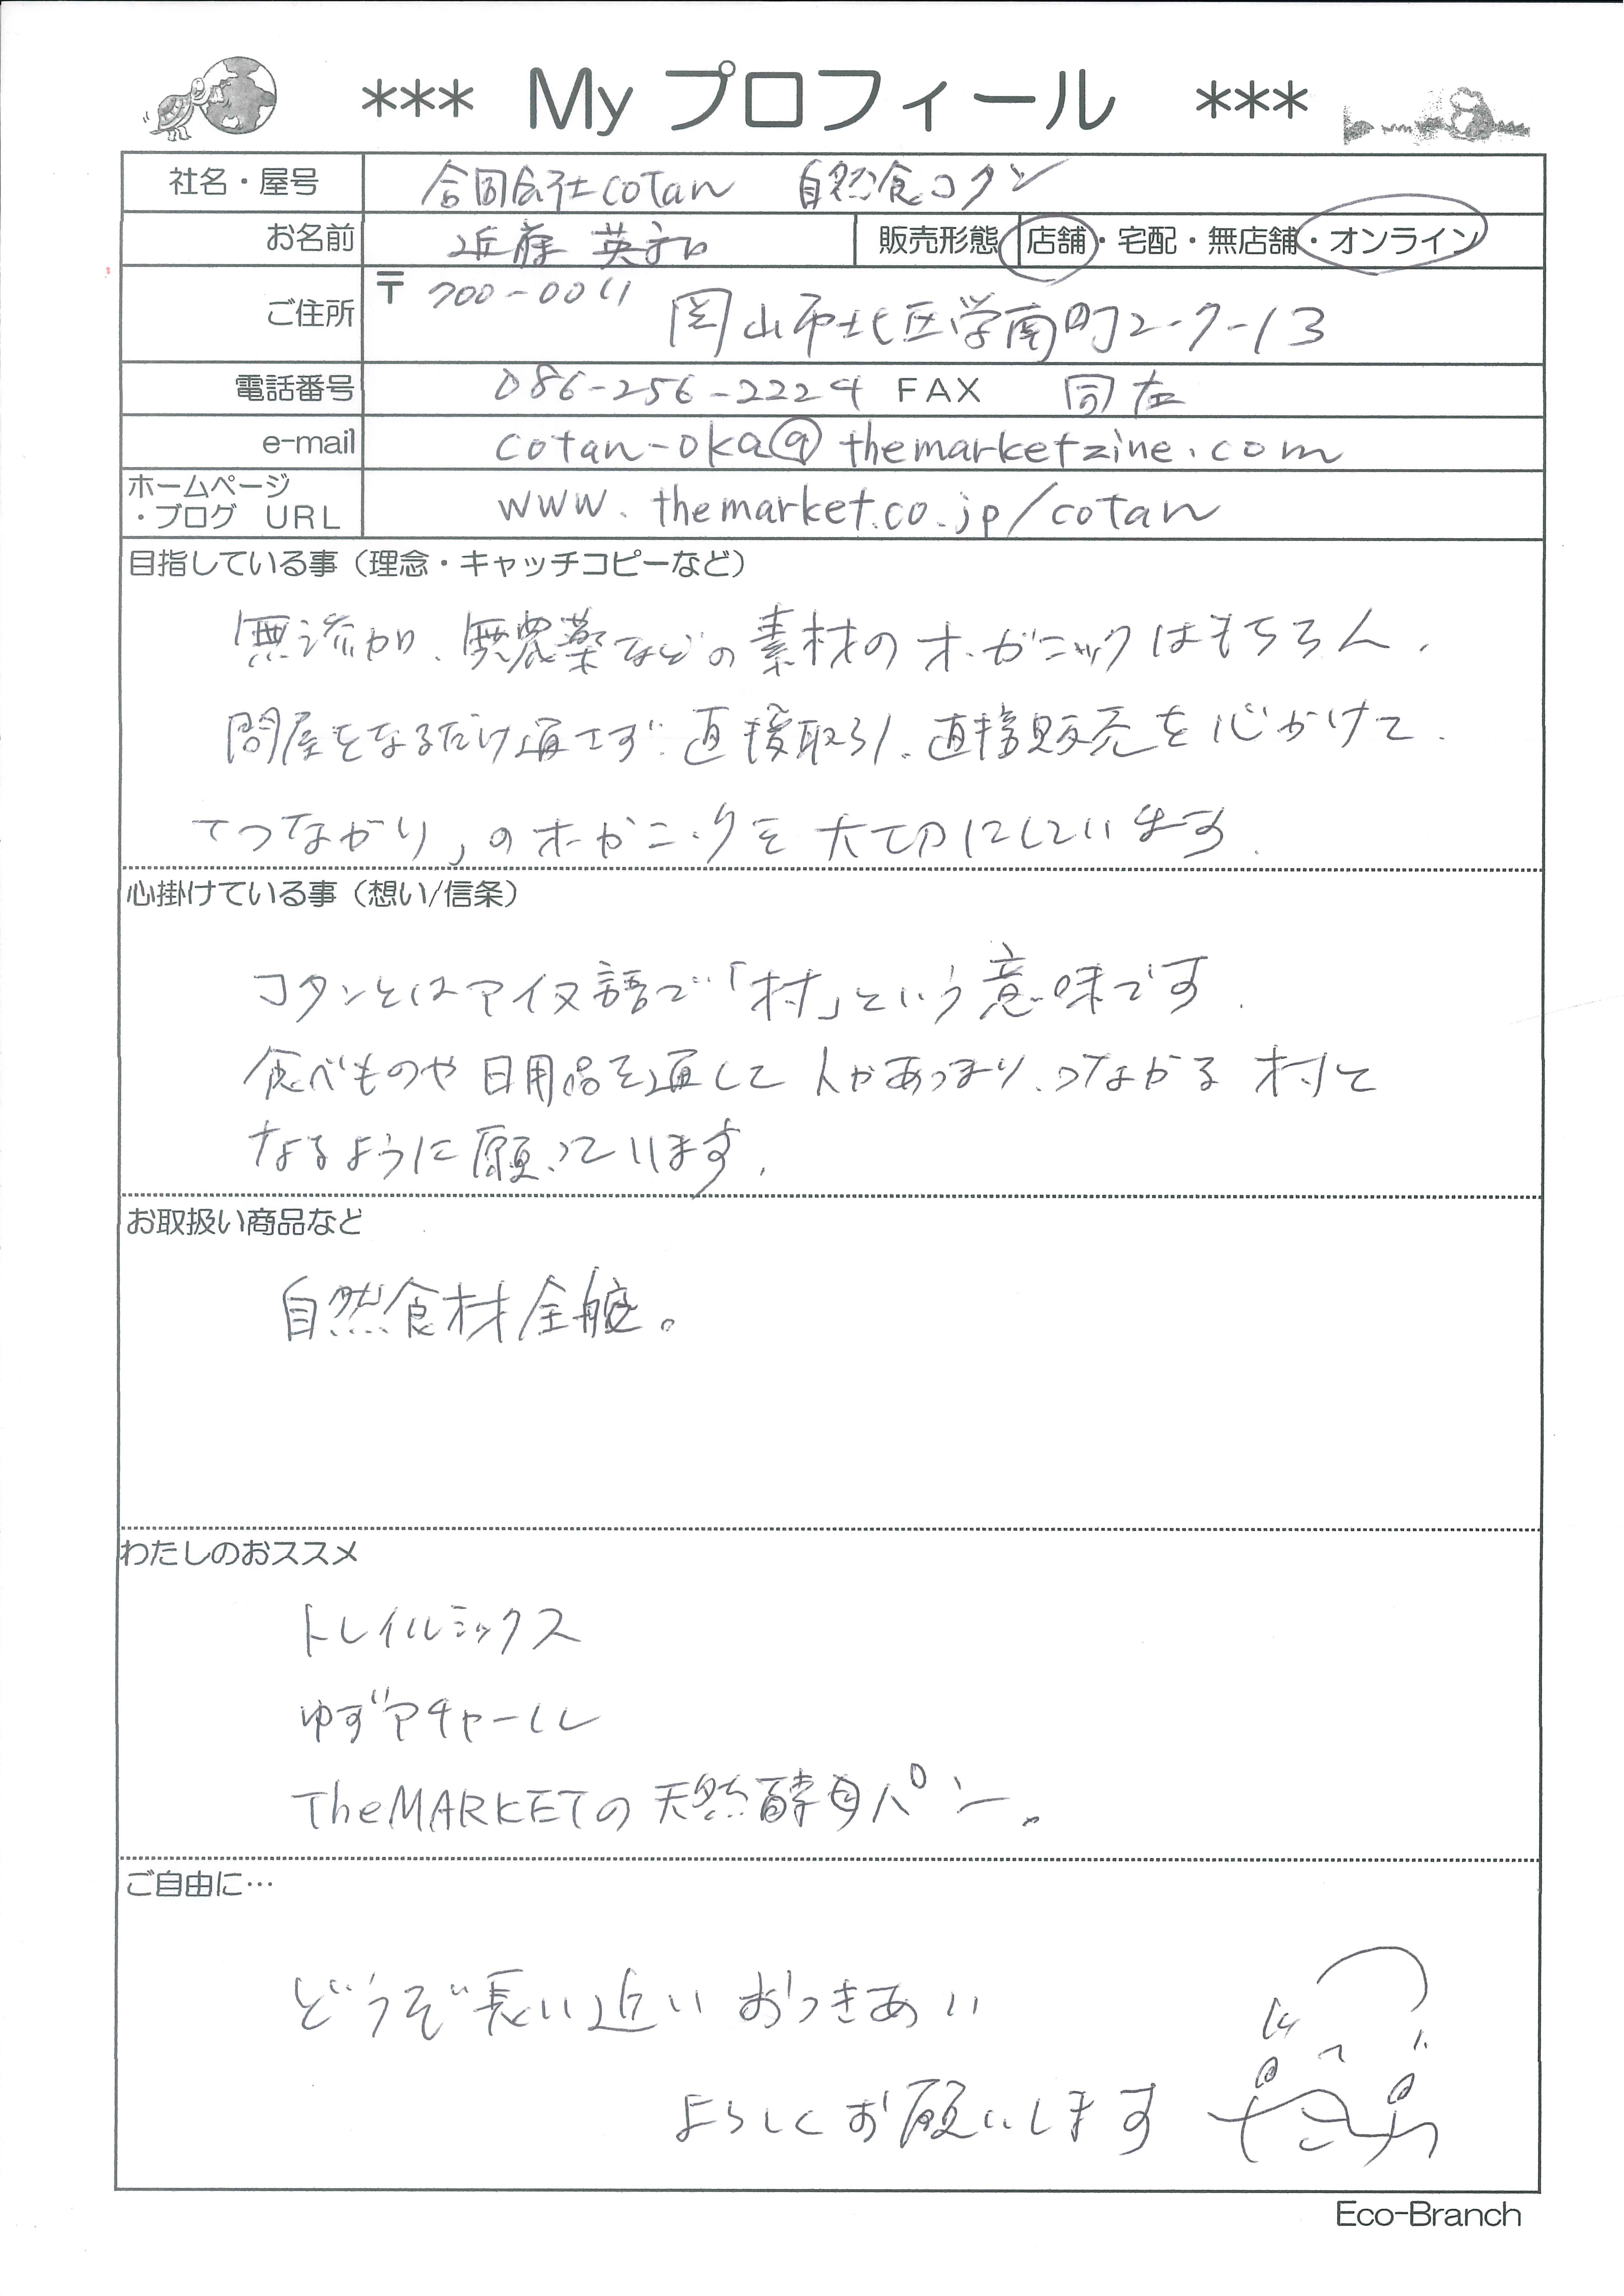 *** My プロフィール ***
社名・屋号 合同会社cotan 自然食コタン
お名前 近藤 英和 販売形態 店舗・宅配・無店舗・オンライン
ご住所 〒700-0011 岡山市北区学南町2-7-13
電話番号 086-256-2224 FAX 同左
e-mail cotan-oka@themarketzine.com
ホームページ
・ブログ URL www.themarket.co.jp/cotan
目指している事（理念・キャッチコピーなど）
無添加、無農薬などの素材のオーガニックはもちろん、
問屋をなるだけ通さず、直接取引、直接販売を心がけて、
「つながり」のオーガニックを大切にしています。
心掛けている事（想い/信条）
コタンとはアイヌ語で「村」という意味です。
食べものや日用品を通して人があつまり、つながる村と
なるように願っています。
お取扱い商品など
自然食材全般。
わたしのおススメ
トレイルミックス
ゆずアチャール
TheMARKETの天然酵母パン。
ご自由に…
どうぞ長い近いおつきあい
よろしくお願いします
Eco-Branch